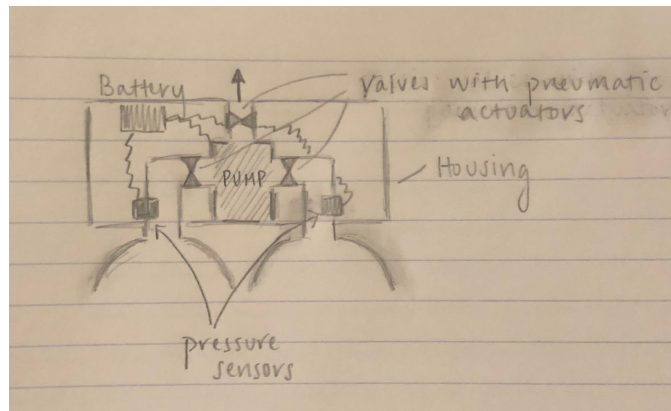 Battery
valves with pneumatic
actuators
PUMP
Housing
pressure
sensors